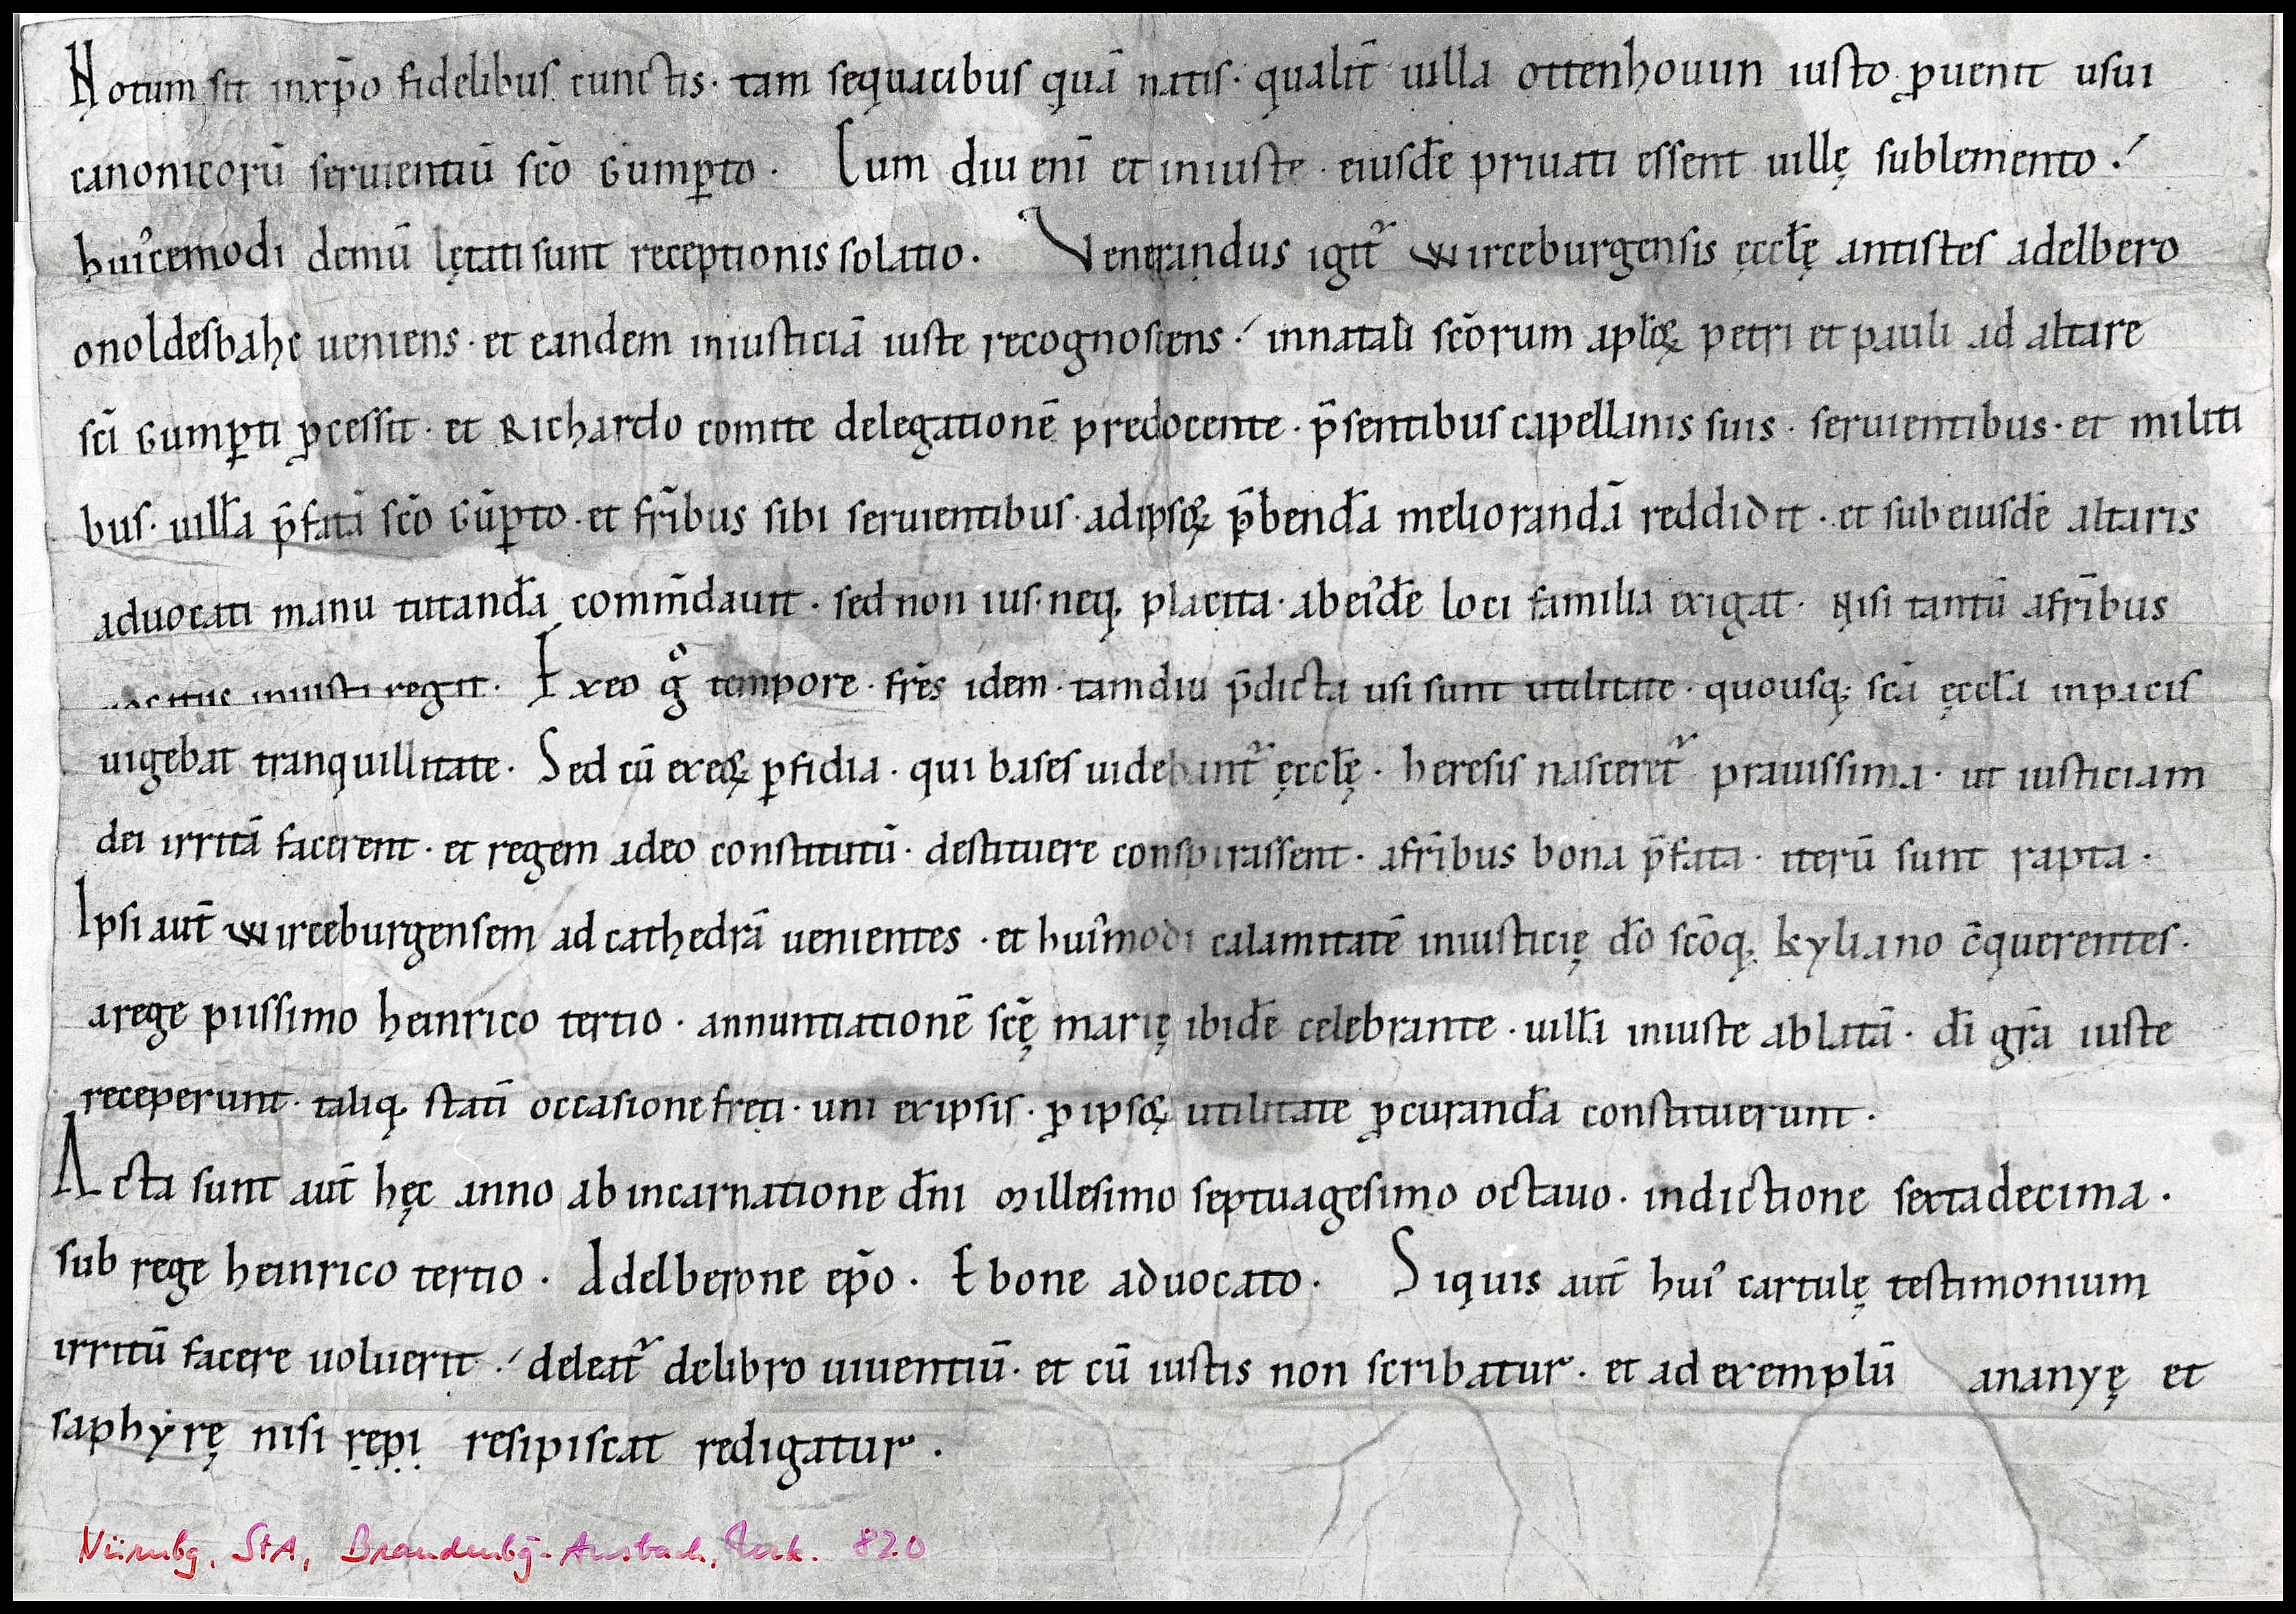 Notum sit inxp̄o fidelibus cunctis · tam sequacibus quā natis · qualit̄ uilla ottenhouun iusto ꝓuenit usui
canonicorū seruientiū sc̄o Gumꝑto · Cum diu enī et iniuste · eiusdē priuati essent uillę sublemento ·
huiꝰcemodi demū lętati sunt receptionis solatio · Venerandus igit᷑ wirceburgensis ęccłę antistes adelbero
onoldesbahc ueniens · et eandem iniusticiā iuste recognoscens · innatali sc̄orum apłoꝝ petri et pauli ad altare
sc̄i Gumꝑti ꝓcessit · et Richardo comite delegationē predocente · p̄sentibus capellanis suis · seruientibus · et militi
bus · uillā p̄fatā sc̄o Gūꝑto · et fr̄ibus sibi seruientibus · adipsoꝝ p̄bendā meliorandā reddidit · et sub eiusdē altaris
aduocati manu tutandā com̄mdauit · sed non ius · neq; placita · abeiꝰdē loci familia exigat · Nisi tantū afr̄ibus
iniusti regit · Exeo gͦ tempore · fr̄es idem · tamdiu p̄dicta usi sunt utilitate · quousq; sc̄a ęccła inpacis
uigebat tranquillitate · Sed cū exeoꝝ ꝑfidia · qui bases uidebant᷑ ęccłę · heresis nasceret᷑ prauissima · ut iusticiam
dei irritā facerent · et regem adeo constitutū · destituere conspirassent · afr̄ibus bona p̄fata · iterū sunt rapta ·
Ipsi aut̄ wirceburgensem ad cathedrā uenientes · et huiꝰmodi calamitatē iniusticię dō sc̄oq; kyliano c̄querentes ·
arege piissimo heinrico tertio · annuntiationē sc̄ę marię ibidē celebrante · uillā iniuste ablatā · dī gr̄a iuste
receperunt · taliq; statī occasione freti · uni exipsis · ꝓ ipsoꝝ utilitate ꝓcurandā constituerunt ·
Acta sunt aut̄ hęc anno ab incarnatione dn̄i Millesimo septuagesimo octauo · indictione sextadecima ·
sub rege heinrico tertio · Adelberone ep̄o · Ebone aduocato · Siquis aut̄ huiꝰ cartulę testimonium
irritū facere uoluerit · deleat᷑ delibro uiuentiū · et cū iustis non scribatur · et ad exemplū ananyę et
saphẏrę nisi ṛẹp̣ị resipiscat redigatur ·
Nürnbg, StA, Brandenbg-Ansbach, Urk. 820